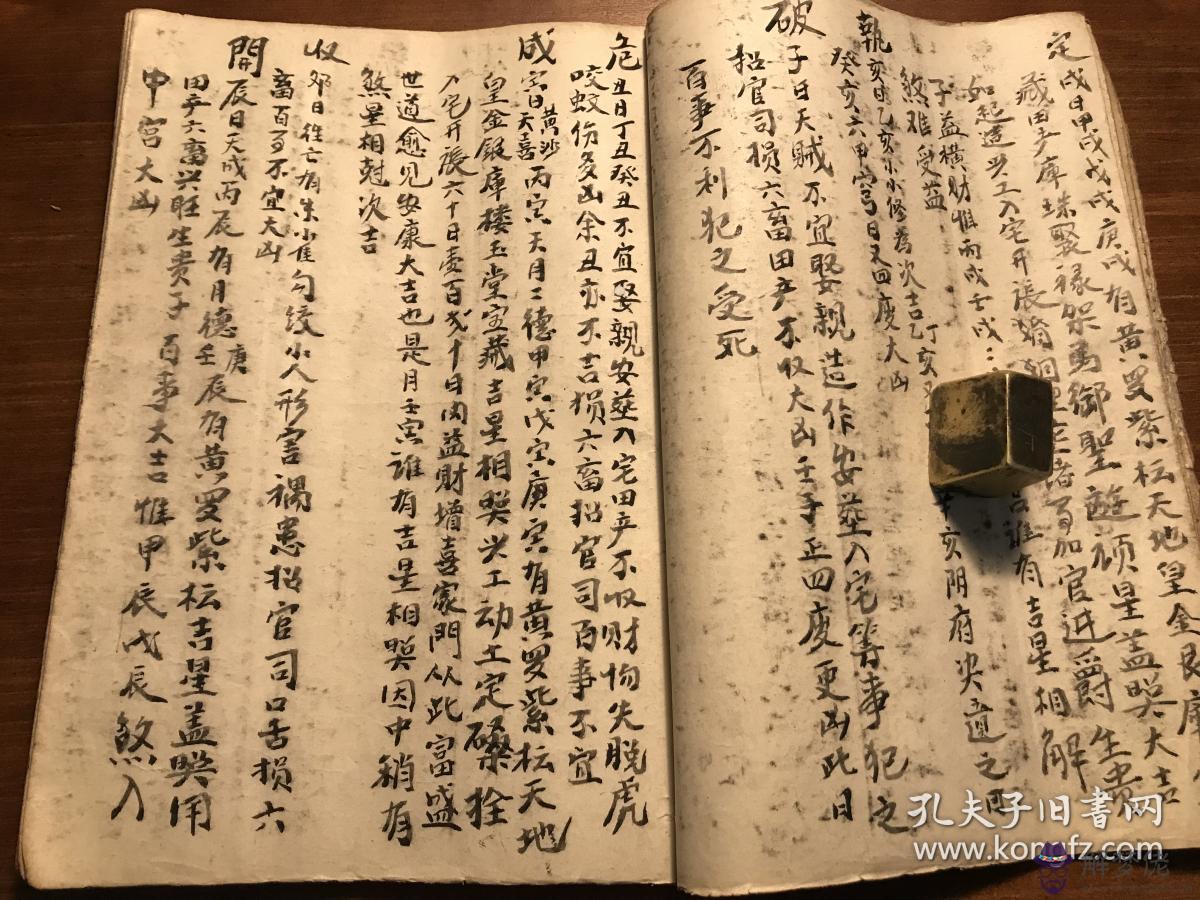 定戌日甲戌戊戌庚戌有黄罗紫枟天地皇金艮库
藏田产库珠聚禄架马御聖遊顾星盖照大吉
如起造兴工入宅开张 加官进爵生贵
子益横财惟丙戌壬戌 吉谁有吉星相解
煞难受益
執亥日乙亥小小修為次吉乙丁亥 辛亥阴府决遭之凶
癸亥六甲穷日又四废大凶
破子日天贼不宜娶親造作安葬入宅等事犯之
招官司损六畜田产不収大凶壬子正四废更凶此日
百事不利犯之受死
危丑日丁丑癸丑不宜娶親安葬入宅田产不収财物失脱虎
咬蛟伤多凶余丑亦不吉损六畜招官司百事不宜
成寅日天喜黄沙丙寅天月二德甲寅戊寅庚寅有黄罗紫枟天地
皇金銀庫楼玉堂宝藏吉星相照兴工动土定磉拴
入宅开張六十日壹百式十日内益財增喜家門从此富盛
世道愈见安康大吉也是月壬寅谁有吉星相照因中稍有
煞星相尅次吉
収夘日往亡有朱雀勾绞小人形害禍患招官司口舌损六
畜百事不宜大凶
開辰日天成丙辰有月德庚壬辰有黄罗紫枟吉星盖照用
田产六畜兴旺生贵子百事大吉惟甲辰戊辰煞入
中宫大凶
孔夫子旧书网
www.kongfz.com
解梦佬